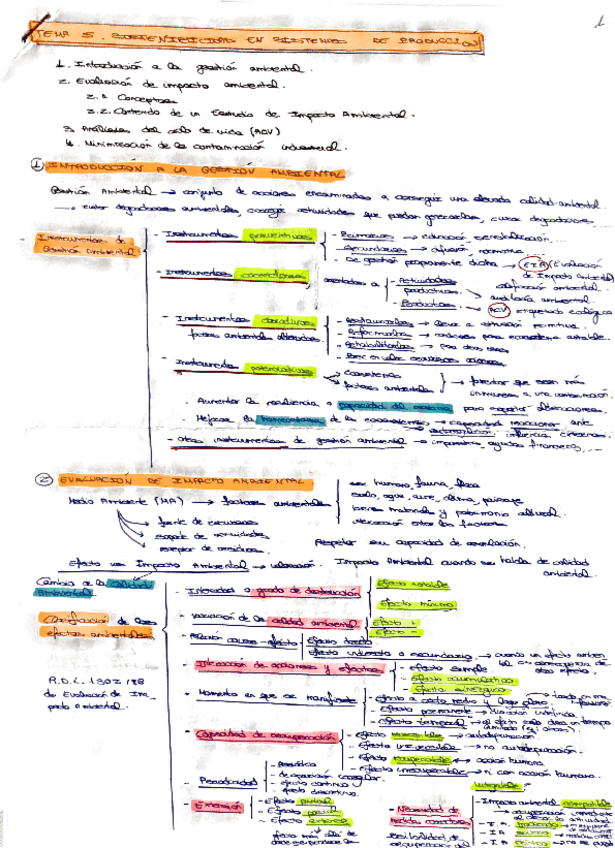 1
TEMA 5. SOSTENIBILIDAD EN SISTEMAS DE PRODUCCIÓN
1. Introducción a la gestión ambiental.
2. Evaluación de impacto ambiental.
2.1 Conceptos
2.2. Contenido de un Estudio de Impacto Ambiental.
3. Análisis del ciclo de vida (ACV)
4. Minimización de la contaminación industrial.
① INTRODUCCIÓN A LA GESTIÓN AMBIENTAL
Gestión Ambiental → conjunto de acciones encaminadas a conseguir una elevada calidad ambiental
→ evitar degradaciones ambientales, corregir actividades que puedan generarlas, curar degradaciones
- Instrumentos de Gestión Ambiental
- Instrumentos preventivos
- Primarios → educación, sensibilización.
- Secundarios → difusión normativa
- De gestión propiamente dicha → EIA (Evaluación de Impacto Ambiental)
- Instrumentos correctores
orientados a
- Actividades productivas
auditoría ambiental.
- Productos → ACV etiquetado ecológico
- Instrumentos curativos
factores ambientales alterados
- Restauración → llevar a situación primitiva.
- Reformación
- Rehabilitación
- Poner en valor recursos ociosos
- Instrumentos potenciativos
→ Ecosistemas
→ factores ambientales
→ para que sean más inmunes a una contaminación
- Aumentar la resiliencia o capacidad del sistema para soportar alteraciones.
- Mejorar la homeostasia de los ecosistemas → capacidad reaccionar ante influencia externa
- Otros instrumentos de gestión ambiental → impuestos, ayudas financieras, ...
② EVALUACIÓN DE IMPACTO AMBIENTAL
Medio Ambiente (MA) → factores ambientales
ser humano, fauna, flora
suelo, agua, aire, clima, paisaje
bienes materiales y patrimonio cultural.
interacción entre los factores
→ fuente de recursos
→ soporte de actividades
→ receptor de residuos
Respetar su capacidad de asimilación.
Efecto vs Impacto Ambiental → valoración. Impacto Ambiental cuando se habla de calidad ambiental.
Cambio de la calidad Ambiental
Clasificación de los efectos ambientales
R.D.L. 1302/86 de Evaluación de Impacto Ambiental.
- Intensidad o grado de destrucción
Efecto notable
Efecto mínimo
- Variación de la calidad ambiental
Efecto +
Efecto -
- Relación causa-efecto
Efecto directo
Efecto indirecto o secundario → cuando un efecto ambiental es consecuencia de otro efecto.
- Interacción de acciones y efectos
- Efecto simple
- Efecto acumulativo
- Efecto sinérgico
- Momento en que se manifiesta
- Efecto a corto, medio y largo plazo
- Efecto permanente → duración indefinida
- Efecto temporal
- Capacidad de recuperación
- Efecto reversible → autodepuración
- Efecto irreversible → no autodepuración.
- Efecto recuperable → acción humana
- Efecto irrecuperable → ni con acción humana.
- Periodicidad
- Periódico
- de aparición irregular.
- efecto continuo
- efecto discontinuo.
- Extensión
- Efecto puntual
- Efecto parcial
- Efecto extremo
- Necesidad de medidas correctoras
- Impacto ambiental compatible
- I A moderado
- I A severo
- I A crítico